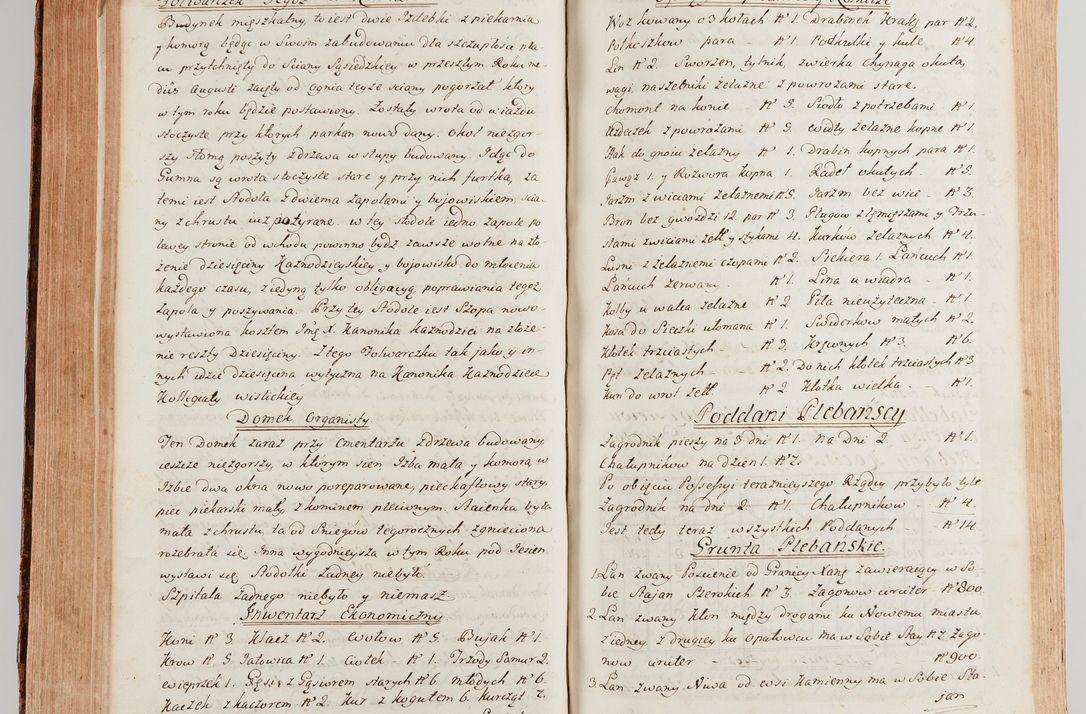 Budynek mięszkalny, to iest dwie Izdebki z piekarnia
y komorą będąc w Swoim zabudowaniu dla szczupłości pla-
cu przytchnięty do Sciany Sąsiedzkiey w przeszłym Roku me-
dius Augusti zaięty od Ognia teyże sciany pogorzał który
w tym roku będzie postawiony. Zostały wrota od wiazdu
stoczyste przy których parkan nowo dany. Okoł niezgor-
szy Słomą poszyty z drzewa w słupy budowany. Idąc do
Gumna są wrota stoczyste stare y przy nich furtka, za
temi iest Stodoła z dwiema zapolami y bojowiskiem, scia-
ny z chrustu iuż potyrane. w tey stodole iedno zapole po
lewey stronie od wschodu powinno bydź zawsze wolne na zło-
żenie dziesięciny Kaznodzieyskiey, y bojowisko do młocenia
każdego czasu, z iedyną tylko obligacyą, poprawiania tegoż
Zapola y poszywania. Przy tey Stodole iest Szopa nowo
wystawiona kosztem Jmę X. Kanonika Kaznodziei na złoże-
nie reszty Dziesięciny. Z tego Folwarczku tak jako y in-
nych idzie dziesięcina wytyczna na Kanonika Kaznodzieie
Kollegiaty wislickiey
Domek Organisty
Ten Domek zaraz przy cmentarzu z drzewa budowany
ieszcze niezgorszy, w którym sien, Izba mała y komora, w
Izbie dwa okna nowo poreparowane, piec kaflowy stary,
piec piekarski mały, z kominem plecionym. Staienka była
mała z chrustu, ta od Sniegów tegorocznych zgnieciona
rozebrała się. Inna wygodnieysza w tym Roku pod Jesien
wystawi się. Stodołki Zadney niebyło
Szpitala żadnego niebyło y niemasz
Inwentarz Ekonomiczny
Koni N° 3 Klacz N° 2. Wołow N° 5 Bujak N° 1.
Krow N° 5 Jałowica N° 1. Ciołek - N° 1. Trzody Samur 2.
wieprzek 1. Gęsi z Gąsiorem starych N° 6 młodych N° 6.
Kaczek z kaczorem N° 2 Kur z kogutem 6. kurcząt 7.
Woz kowany o 3 kołach N° 1 Drabinek Kraky par N° 2.
Połkoszkow para - N° 1. Podkulki y kule N° 4.
Lin N° 2. Sworzen, tylnik, zwierka Chynaga okuta,
wagi, naszelniki żelazne z powrozami stare.
Chomont na konie - N° 5. Siodło z potrzebami N° 1.
Uzdeczek z powrozami N° 5. widły żelazne kopne N° 1.
Hak do gnoiu żelazny N° 1. Drabin kopnych para N° 1.
Gawąz 1. y Rozwora kopna 1. Radeł okutych - N° 3.
Jarzm z wiciami żelaznemi N° 5. Jarzm bez wici - N° 3.
Bron bez gwozdzi 12. par N° 3. Pługow z lemięszami y Trzu-
słami z wiciami żell: y stykami 4. Kurków żelaznych N° 4.
Lusni z żelaznemi czopami N° 2. Siekiera 1. Łańcuch N° 1.
Łańcuch zerwany N° 1. Lina u wiadra - N° 1.
Kolby u walca żelazne N° 2 Piła nieużyteczna - N° 1.
Kosa do Sieczki ułomana N° 1. Swiderkow małych N° 2.
Młotek trzciastych - N° 3. Kręconych N° 3. N° 6.
Pęt żelaznych N° 2. Do nich kłotek trzciastych N° 3
Kun do wrot żell: N° 2 Kłotka wielka - N° 1.
Poddani Plebańscy
Zagrodnik pieszy na 3 dni N° 1. na Dni 2. N° 1.
Chałupnikow na dzien 1. N° 7.
Po obięciu Possessyi teraznieyszego Rządcy przybyło tyle
Zagrodnik na dni 2. - N° 1. Chałupnikow - N° 4.
Jest tedy teraz wszystkich Poddanych - N° 14
Grunta Plebańskie.
1. Łan zwany Pościenie od Granicy Xani zawieraiący w So-
bie Staian Szerokich N° 3. Zagonow circiter N° 300.
2. Łan zwany Klin między drogami ku Nowemu miastu
z iedney z drugiey ku Opatowcu ma w Sobie Stay N° 7. Zago-
now circiter - N° 900.
3. Łan zwany Niwa od wsi Kamienny ma w Sobie Sta-
jan